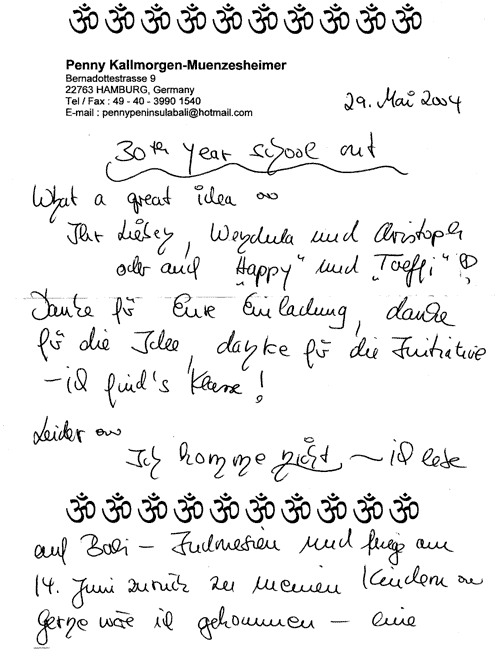 ॐ ॐ ॐ ॐ ॐ ॐ ॐ ॐ ॐ ॐ
Penny Kallmorgen-Muenzesheimer
Bernadottestrasse 9
22763 HAMBURG, Germany
Tel / Fax : 49 - 40 - 3990 1540
E-mail : pennypeninsulabali@hotmail.com
29. Mai 2004
30th year school out
What a great idea
Ihr Lieben, und Christoph
oder auch "Happy" und "Toeffi"!
Danke für Eure Einladung, danke
für die Idee, danke für die Initiative
– ich find's Klasse!
Leider
Ich komme nicht – ich lebe
ॐ ॐ ॐ ॐ ॐ ॐ ॐ ॐ ॐ ॐ
auf Bali – Indonesien und fliege am
14. Juni zurück zu meinen Kindern
Gerne wäre ich gekommen – eine